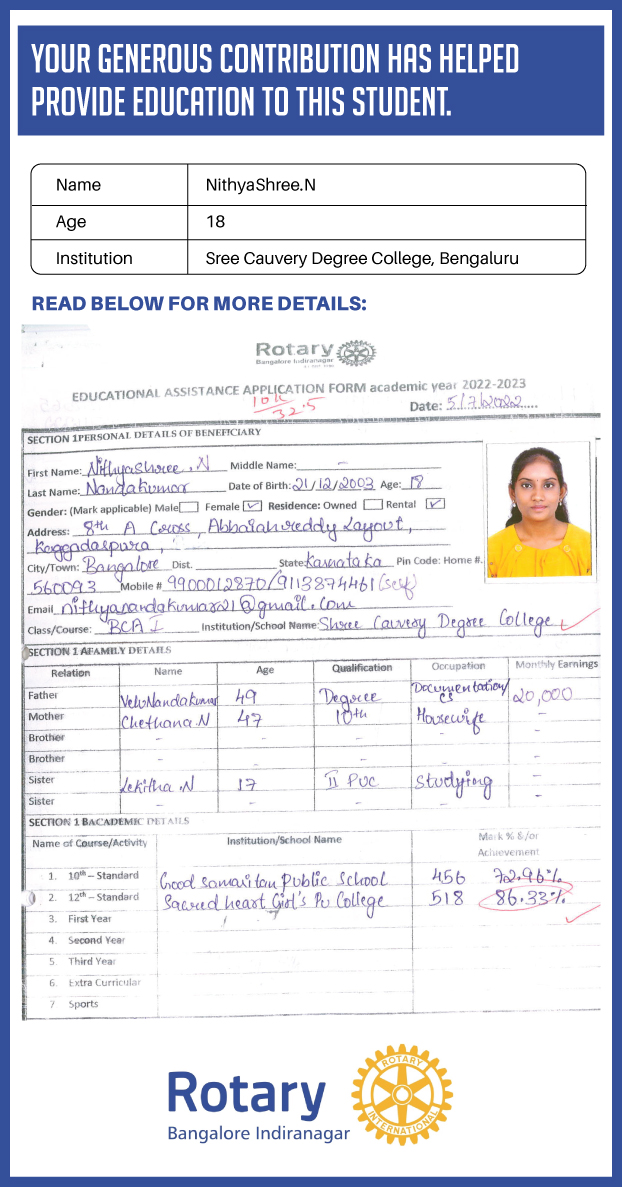 YOUR GENEROUS CONTRIBUTION HAS HELPED
PROVIDE EDUCATION TO THIS STUDENT.
Name NithyaShree.N
Age 18
Institution Sree Cauvery Degree College, Bengaluru
READ BELOW FOR MORE DETAILS:
Rotary
Bangalore Indiranagar
EDUCATIONAL ASSISTANCE APPLICATION FORM academic year 2022-2023
10K
32.5
Date: 5/7/2022
SECTION 1PERSONAL DETAILS OF BENEFICIARY
First Name: Nithyashree .N Middle Name: –
Last Name: Nandakumar Date of Birth: 21/12/2003 Age: 18
Gender: (Mark applicable) Male Female ✓ Residence: Owned Rental ✓
Address: 8th A Cross, Abbaiahreddy Layout,
Kaggadaspura,
City/Town: Bangalore Dist. State: Karnataka Pin Code: Home #.
560093 Mobile # 9900012870/9113874461 (self)
Email nithyanandakumar21@gmail.com
Class/Course: BCA I Institution/School Name: Shree Cauvery Degree College
SECTION 1 AFAMILY DETAILS
Relation Name Age Qualification Occupation Monthly Earnings
Father VeluNandakumar 49 Degree Documentation/CS 20,000
Mother Chethana.N 47 10th Housewife –
Brother – – –
Brother – – –
Sister Lekitha.N 17 II PUC Studying –
Sister – – –
SECTION 1 BACADEMIC DETAILS
Name of Course/Activity Institution/School Name Mark % &/or Achievement
1. 10th – Standard Good Samaritan Public School 456 72.96%
2. 12th – Standard Sacred heart Girl's Pu College 518 86.33%
3. First Year
4. Second Year
5. Third Year
6. Extra Curricular
7 Sports
Rotary
Bangalore Indiranagar
ROTARY
INTERNATIONAL